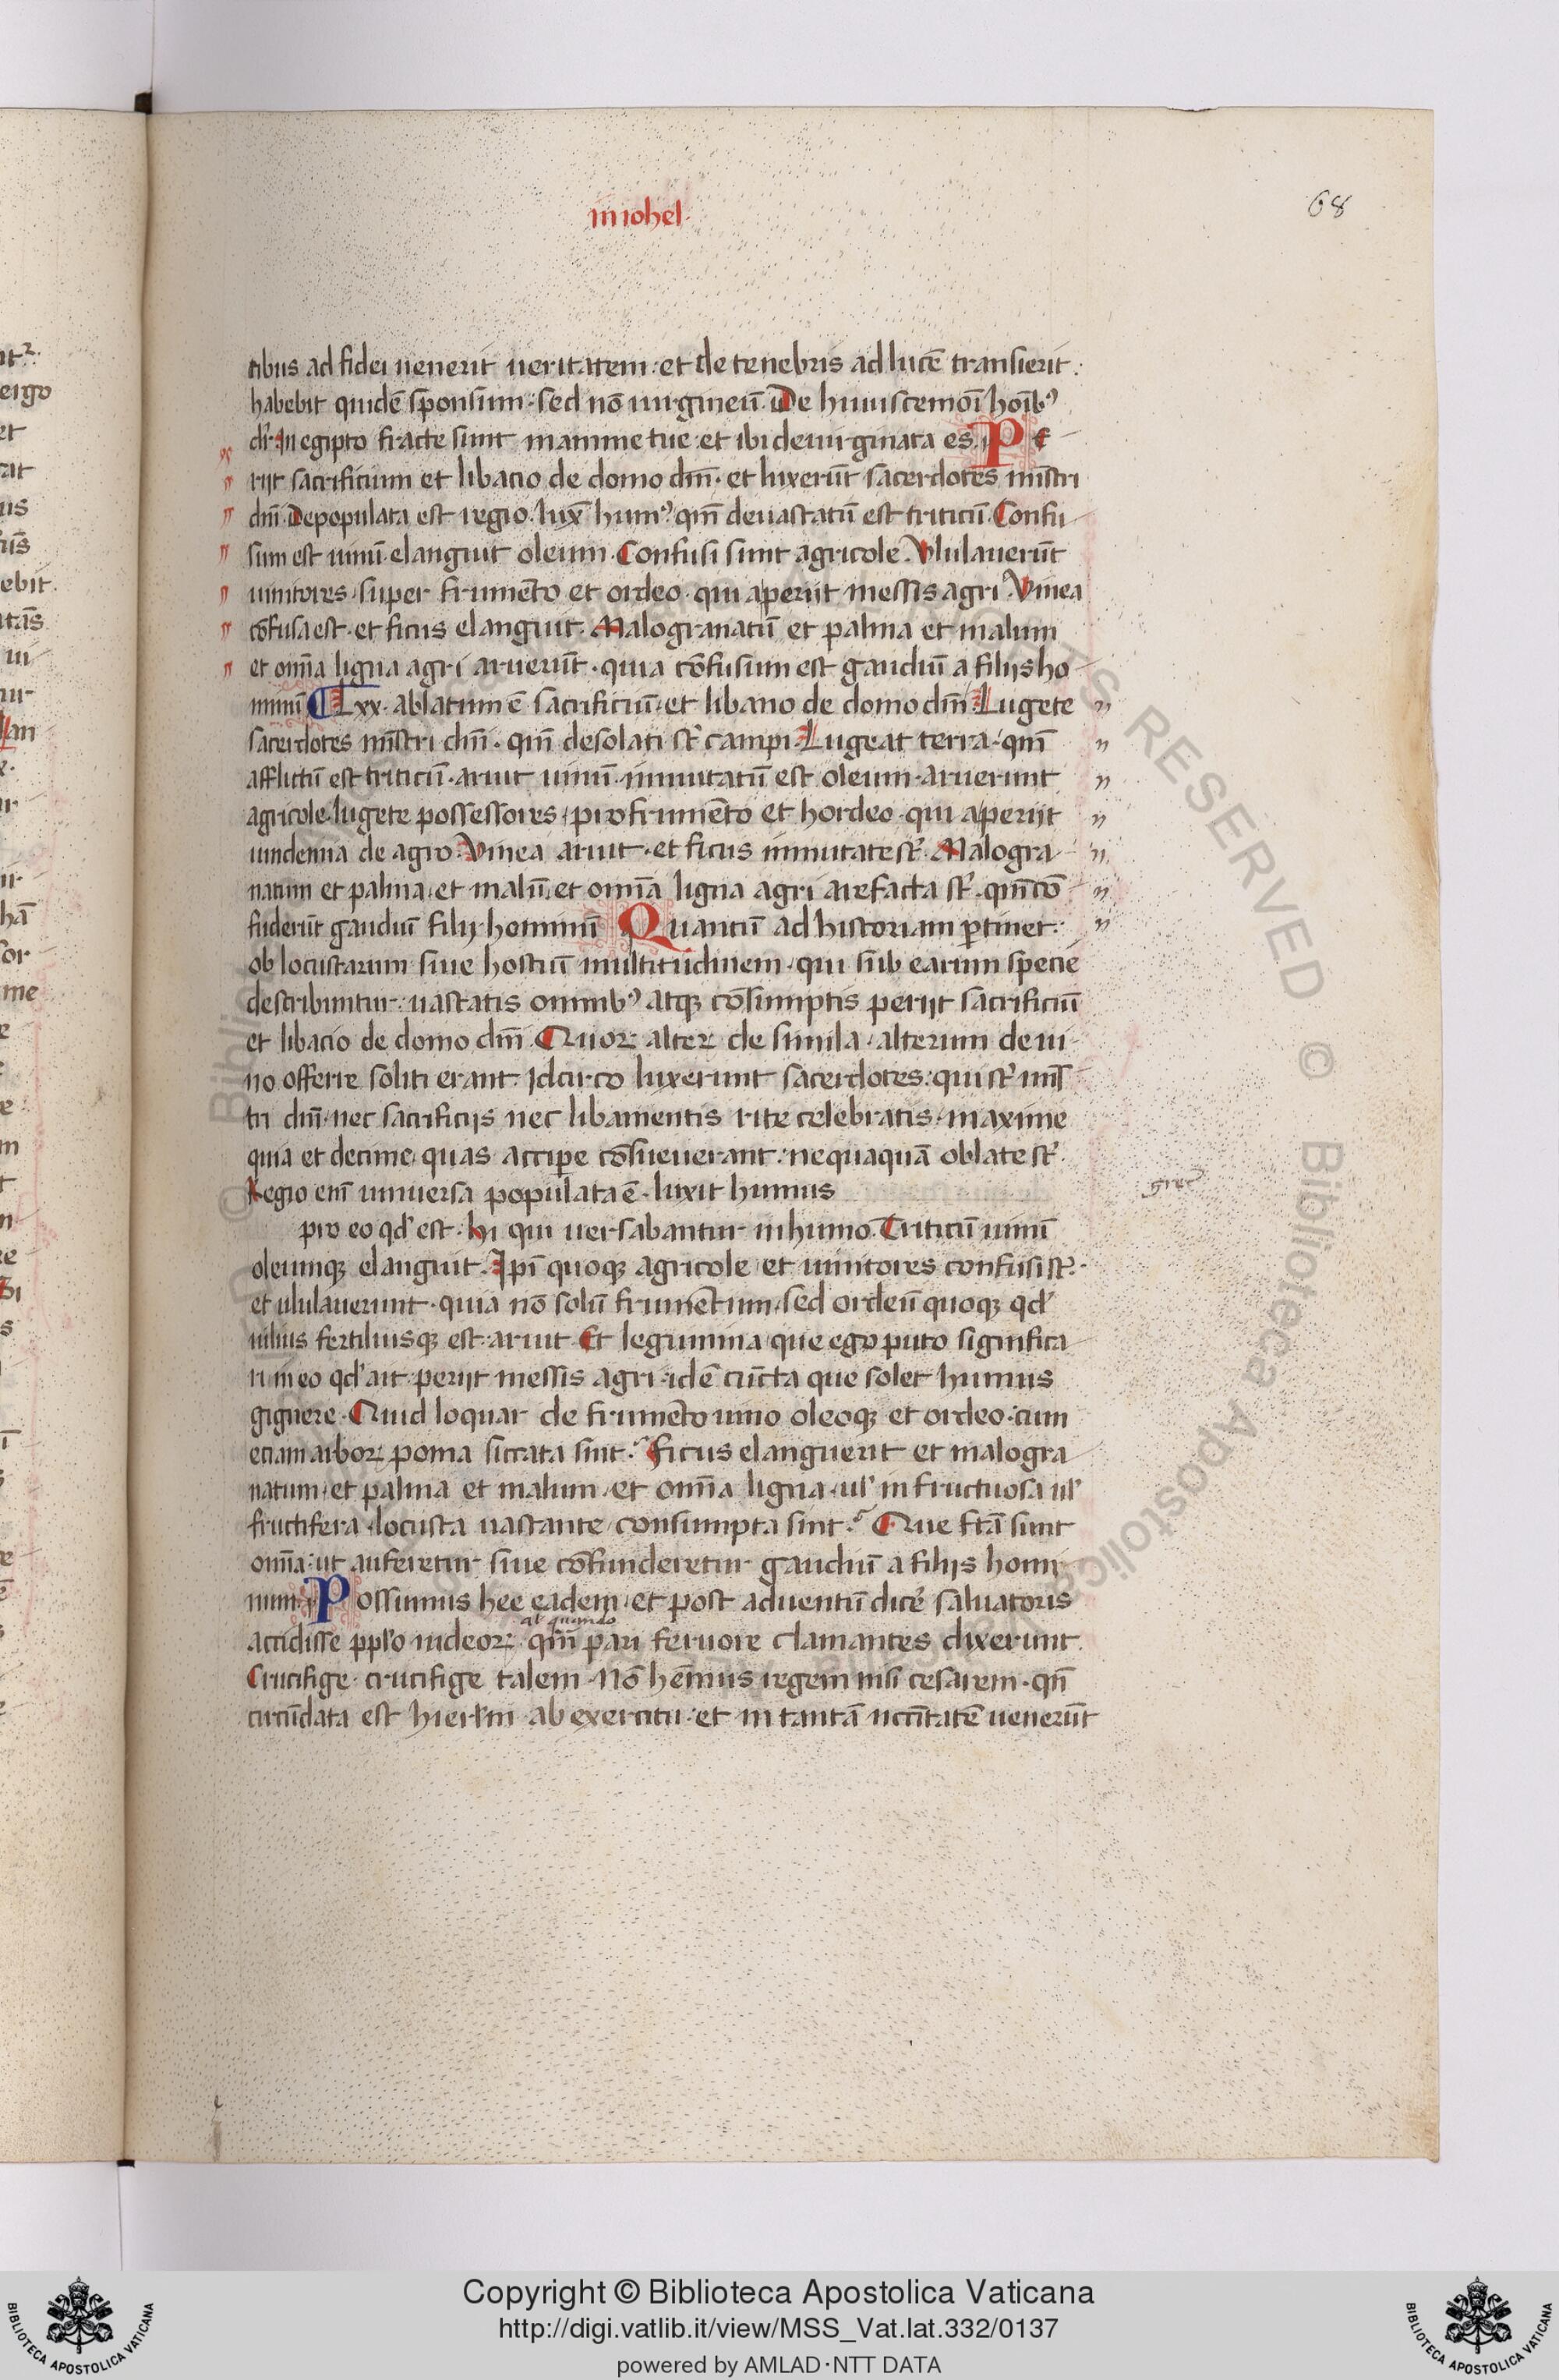 in iohel.
68
ribus ad fidei uenerit ueritatem: et de tenebris ad lucē transierit.
habebit quidē sponsum: sed nō uirgineū. De huiuscemōi hoībꝰ
dr̄. In egipto fracte sunt mamme tue: et ibi deuirginata es. Pe
rijt sacrificium et libacio de domo dn̄i. et luxerūt sacerdotes mīstri
dn̄i. Depopulata est regio. lux̄ humꝰ. qm̄ deuastatū est triticū. Confu
sum est uinū. elanguit oleum. Confusi sunt agricole. Vlulauerūt
uinitores. super frumēto et ordeo. qui aperiit messis agri. Vinea
cōfusa est. et ficus elanguit. Malogranatū et palma et malum
et om̄ia ligna agri aruerūt. quia cōfusum est gaudiū a filijs ho
minū. Lxx. ablatum ē sacrificiū. et libano de domo dn̄i. Lugete
sacerdotes mīstri dn̄i. qm̄ desolati st̄ campi. Lugeat terra. qm̄
afflictū est triticū. aruit uinū. inmutatū est oleum. aruerunt
agricole. lugete possessores. pro frumēto et hordeo. qui aperijt
uindemia de agro. Vinea aruit. et ficus inmutate st̄. Malogra
natum et palma. et malū. et om̄ia ligna agri arefacta st̄. qm̄ cō
fuderūt gaudiū filij hominū. Quantū ad historiam ꝑtinet:
ob locustarum siue hostiū multitudinem. qui sub earum specie
describuntur: uastatis omnibꝰ atqꝫ cōsumptis perijt sacrificiū
et libacio de domo dn̄i. Quoꝝ alteꝝ de simila. alterum de ui
no offerre soliti erant. Idcirco luxerunt sacerdotes: qui st̄ mīs
tri dn̄i. nec sacrificijs nec libamentis rite celebratis. maxime
quia et decime quas acciꝑe cōsueuerant: nequaquā oblate st̄.
Regio eni᷑ uniuersa populata ē. luxit humus
pro eo qd̓ est. hi qui uersabantur in humo. Triticū uinū
oleumqꝫ elanguit. Ip̄i quoqꝫ agricole et uinitores confusi st̄.
et ululauerunt. quia nō solū frumentum. sed ordeū quoqꝫ qd̓
uilius fertiliusqꝫ est. aruit. Et legumina que ego puto significa
ri in eo qd̓ ait. perijt messis agri. idē cūcta que solet humus
gignere. Quid loquar de frumēto uino oleoqꝫ et ordeo: cum
etiam arboꝝ poma siccata sint. Ficus elanguerit et malogra
natum. et palma et malum. et om̄ia ligna. ul̓ infructuosa ul̓
fructifera. locusta uastante consumpta sint. Que ftā sunt
om̄ia: ut auferetur siue cōfunderetur gaudiū a filijs homi
num. Possumus hec eadem. et post aduentū dice̓ saluatoris
al quando
accidisse ppl̓o iudeoꝝ. qm̄ pari feruore clamantes dixerunt.
Crucifige crucifige talem. Nō hēmus regem nisi cesarem. qn̄
circūdata est hierl̓m ab exercitu. et in tantā nccītatē uenerūt
Copyright © Biblioteca Apostolica Vaticana
http://digi.vatlib.it/view/MSS_Vat.lat.332/0137
powered by AMLAD·NTT DATA